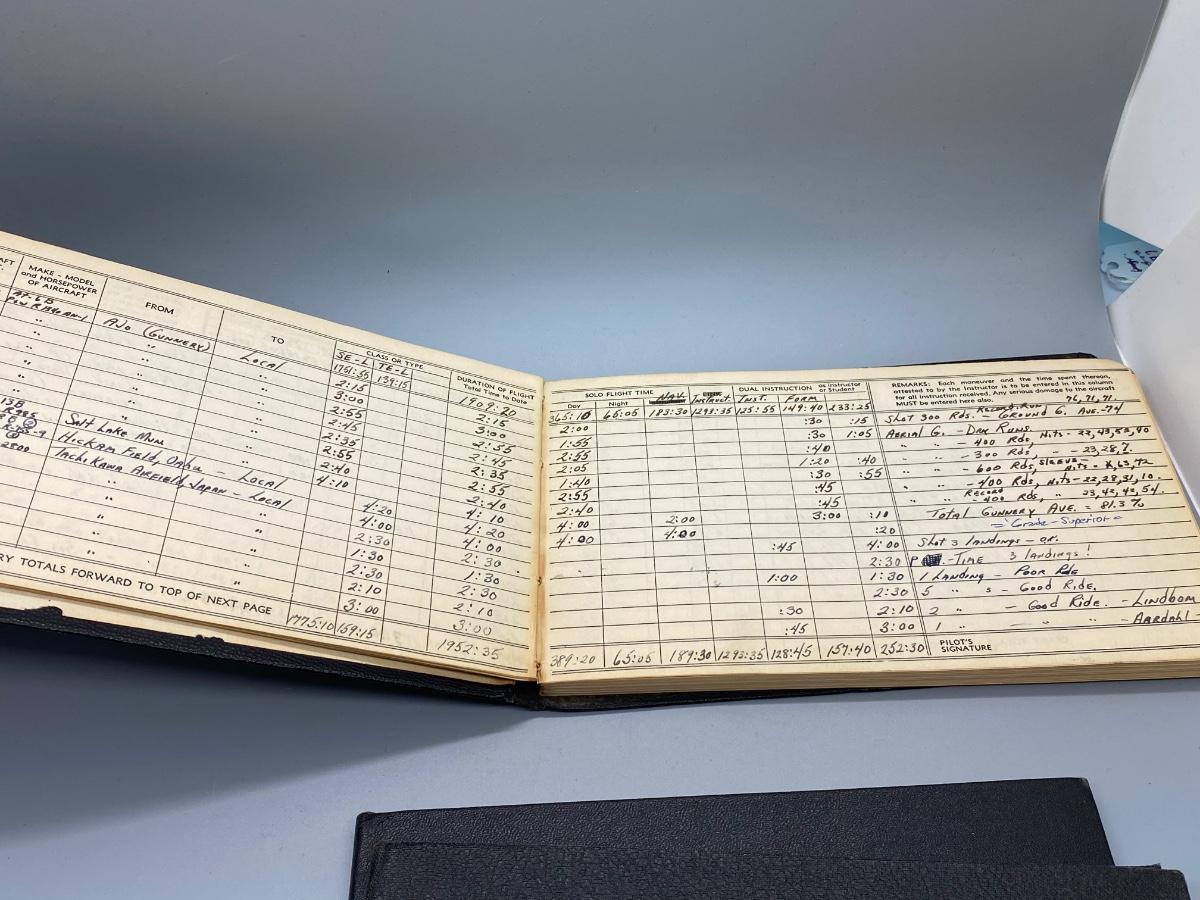 MAKE - MODEL
and HORSEPOWER
OF AIRCRAFT
FROM
TO
CLASS OR TYPE
SE-L TE-L
DURATION OF FLIGHT
Total Time to Date
1751:55 139:15 1909:20
AT-6B
AJO (GUNNERY) LOCAL 2:15 2:15
" " " 3:00 3:00
" " " 2:55 2:55
" " " 2:45 2:45
" " " 2:35 2:35
" " " 2:55 2:55
" " " 2:40 2:40
Salt Lake Mun 4:10 4:10
Hickam Field, Oahu - Local 4:20 4:20
Tachikawa Airfield, Japan - Local 4:00 4:00
" " 2:30 2:30
" " 1:30 1:30
" " 2:30 2:30
" " 2:10 2:10
" " 3:00 3:00
RY TOTALS FORWARD TO TOP OF NEXT PAGE 1775:10 159:15 1952:35
SOLO FLIGHT TIME
Day Night NAV. Instruct.
DUAL INSTRUCTION
INST. FORM
as Instructor
or Student
REMARKS: Each maneuver and the time spent thereon,
attested to by the instructor is to be entered in this column
for all instruction received. Any serious damage to the aircraft
MUST be entered here also.
76, 71, 71.
365:10 65:05 183:30 1293:35 125:55 149:40 233:25 Shot 300 Rds. - Record Run GROUND G. AVE.-74
2:00 :30 :15 AERIAL G. - DRY RUNS.
1:55 :30 1:05 " " - 400 Rds, Hits - 23,43,53,40
2:55 :40 " " - 300 Rds, " - 23,28,7.
2:05 1:20 :40 " " - 600 Rds, SLEEVE- Hits - 63,72
1:40 :30 :55 " " - 400 Rds, Hits - 22,28,31,10.
2:55 :45 " " RECORD - 400 Rds, " 23,42,42,54.
2:40 :45 TOTAL GUNNERY AVE. = 81.3%
4:00 2:00 3:00 :10 = "Grade - Superior" =
4:00 4:00 :20 Shot 3 landings - OK.
:45 4:00 P -TIME 3 landings!
2:30 1 LANDING - POOR Ride
1:00 1:30 5 " s - Good Ride.
2:30 2 " - Good Ride. - LINDBOM
:30 2:10 1 " " " - AARDAHL
:45 3:00
389:20 65:05 189:30 1293:35 128:45 157:40 252:30 PILOT'S
SIGNATURE